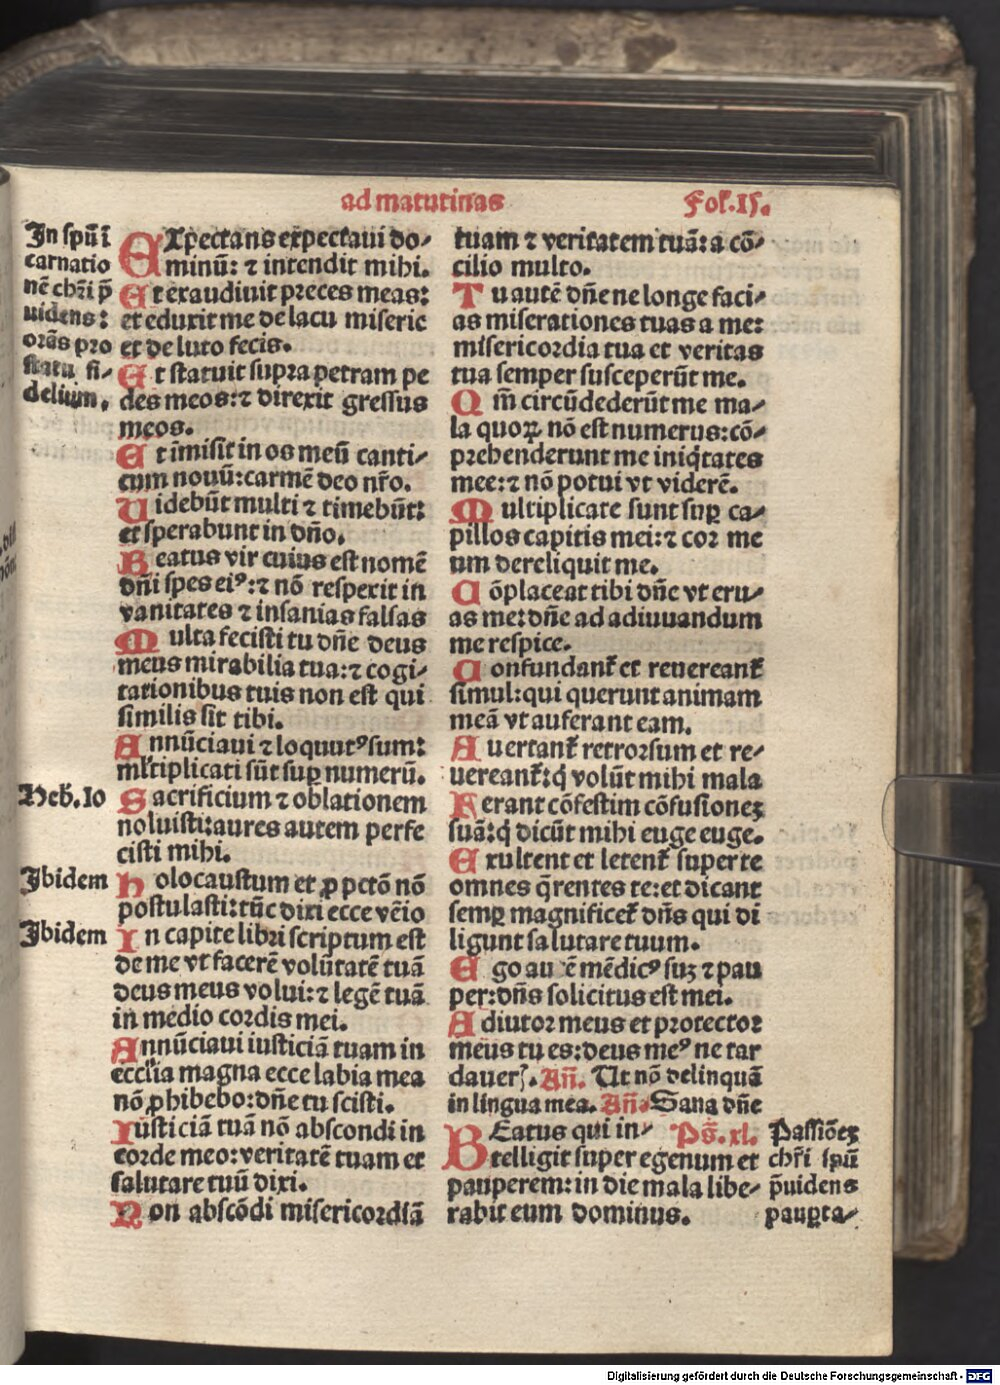 ad matutinas
Fol.15.
In spũ ĩ
carnatio
nẽ chr̃i p̃
uidens:
orãs pro
statu fi⸗
delium.
EXpectans expectaui do⸗
minũ: ⁊ intendit mihi.
Et exaudiuit preces meas:
et eduxit me de lacu miserie
et de luto fecis.
Et statuit supra petram pe
des meos: ⁊ direxit gressus
meos.
Et ĩmisit in os meũ canti⸗
cum nouũ: carmẽ deo nr̃o.
Uidebũt multi ⁊ timebũt:
et sperabunt in dño.
Beatus vir cuius est nomẽ
dñi spes eiꝰ: ⁊ nõ respexit in
vanitates ⁊ insanias falsas
Multa fecisti tu dñe deus
meus mirabilia tua: ⁊ cogi⸗
tationibus tuis non est qui
similis sit tibi.
Annũciaui ⁊ loquutꝰ sum:
ml̃tiplicati sũt suꝑ numerũ.
Heb.10
Sacrificium ⁊ oblationem
noluisti: aures autem perfe
cisti mihi.
Ibidem
Holocaustum et ꝓ pctõ nõ
postulasti: tũc dixi ecce vẽio
Ibidem
In capite libri scriptum est
de me vt facerẽ volũtatẽ tuã
deus meus volui: ⁊ legẽ tuã
in medio cordis mei.
Annũciaui iusticiã tuam in
eccl̃ia magna ecce labia mea
nõ ꝓhibebo: dñe tu scisti.
Iusticiã tuã nõ abscondi in
corde meo: veritatẽ tuam et
salutare tuũ dixi.
Non abscõdi misericordiã
tuam ⁊ veritatem tuã: a cõ⸗
cilio multo.
Tu autẽ dñe ne longe faci⸗
as miserationes tuas a me:
misericordia tua et veritas
tua semper susceperũt me.
Qm̃ circũdederũt me ma⸗
la quoꝝ nõ est numerus: cõ⸗
prehenderunt me iniq̃tates
mee: ⁊ nõ potui vt viderẽ.
Multiplicate sunt suꝑ ca⸗
pillos capitis mei: ⁊ cor me
um dereliquit me.
Cõplaceat tibi dñe vt eru⸗
as me: dñe ad adiuuandum
me respice.
Confundant̃ et reuereant̃
simul: qui querunt animam
meã vt auferant eam.
Auertant̃ retrorsum et re⸗
uereant̃: q̃ volũt mihi mala
Ferant cõfestim cõfusionez
suã: q̃ dicũt mihi euge euge.
Exultent et letent̃ super te
omnes q̃rentes te: et dicant
semꝑ magnificet̃ dñs qui di
ligunt salutare tuum.
Ego autẽ mẽdicꝰ suz ⁊ pau
per: dñs solicitus est mei.
Adiutor meus et protector
meus tu es: deus meꝰ ne tar
daueris. Añ. Ut nõ delinquã
in lingua mea. Añ. Sana dñe
BEatus qui in⸗ Ps̃.xl.
telligit super egenum et
pauperem: in die mala libe⸗
rabit eum dominus.
Passiõez
chr̃i spũ
p̃uidens
pauꝑta⸗
Digitalisierung gefördert durch die Deutsche Forschungsgemeinschaft - DFG